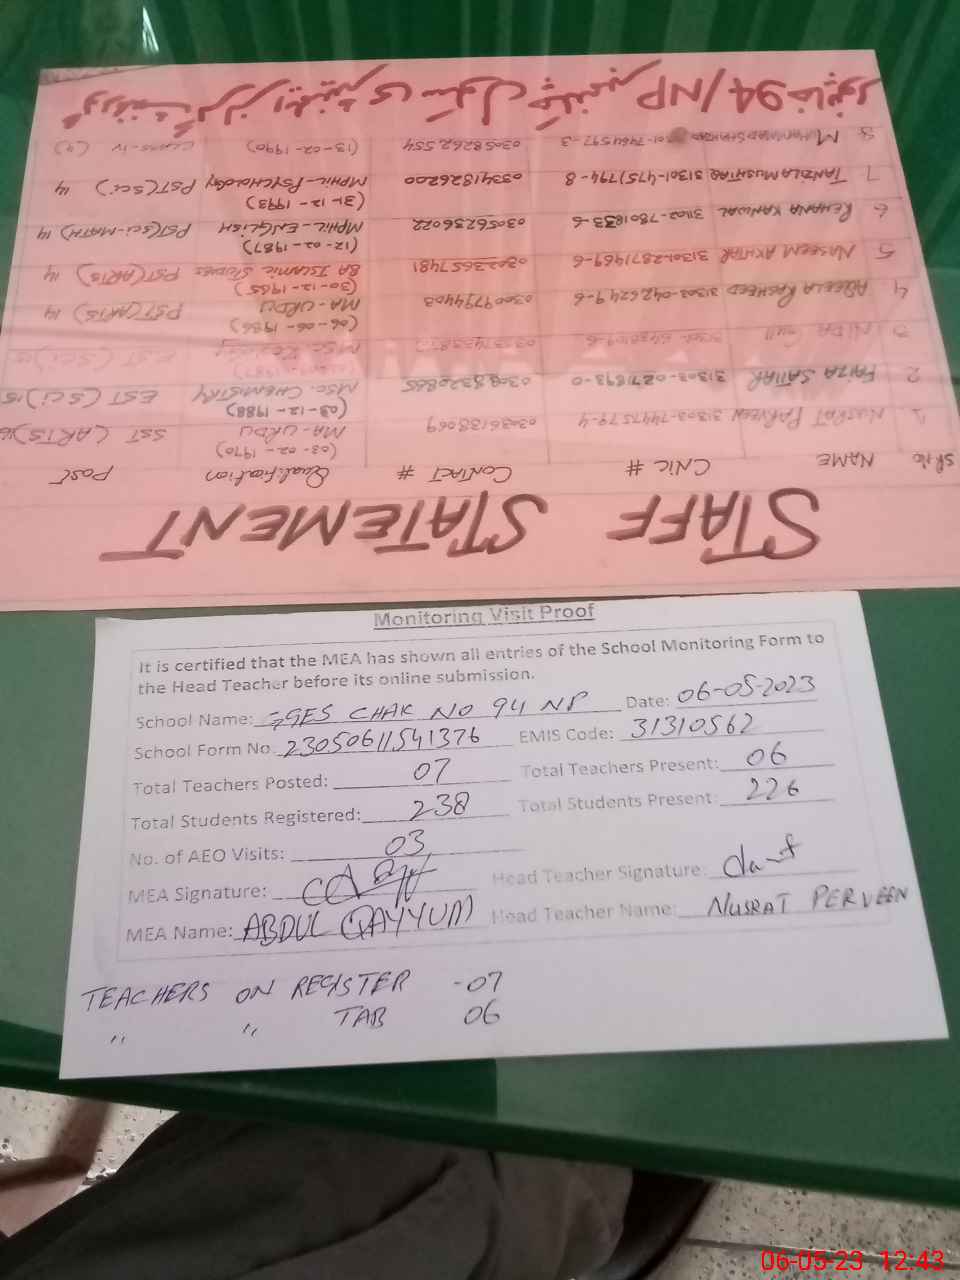 STAFF STATEMENT
Sr.No NAME CNIC # CONTACT # Qualification Post
1 NUSRAT PARVEEN 31303-7447579-4 03036138069 MA-URDU SST (ARTS) 16
(03-02-1970)
2 FAIZA SATTAR 31303-0271893-0 MSC. CHEMISTRY EST (SCI) 15
(03-12-1988)
3 NIDA GULL MSC. Zoology EST (SCI) 15
4 RASHEED 31303-0426249-6 03009794403 MA-URDU PST (ARTS) 14
(06-06-1986)
5 NASEEM AKHTAR 31301-2871469-6 03023657481 BA ISLAMIC STUDIES PST (ARTS) 14
(30-12-1965)
6 REHANA KANWAL 31102-7801833-6 03056236022 MPHIL-ENGLISH PST (SCI-MATH) 14
(12-02-1987)
7 TANZILA MUSHTAQ 31301-4751794-8 03341826200 MPHIL-PSYCHOLOGY PST (SCI) 14
(31-12-1993)
8 MUHAMMAD 03058262554 (13-02-1990) CLASS-IV (4)
گورنمنٹ گرلز ایلیمنٹری سکول چک نمبر 94/NP خانپور
Monitoring Visit Proof
It is certified that the MEA has shown all entries of the School Monitoring Form to
the Head Teacher before its online submission.
School Name: GGES CHAK NO 94 NP Date: 06-05-2023
School Form No. 23050611541376 EMIS Code: 31310562
Total Teachers Posted: 07 Total Teachers Present: 06
Total Students Registered: 238 Total Students Present: 226
No. of AEO Visits: 03
MEA Signature: Head Teacher Signature:
MEA Name: ABDUL QAYYUM Head Teacher Name: NUSRAT PERVEEN
TEACHERS ON REGISTER -07
" " TAB 06
06-05-23 12:43